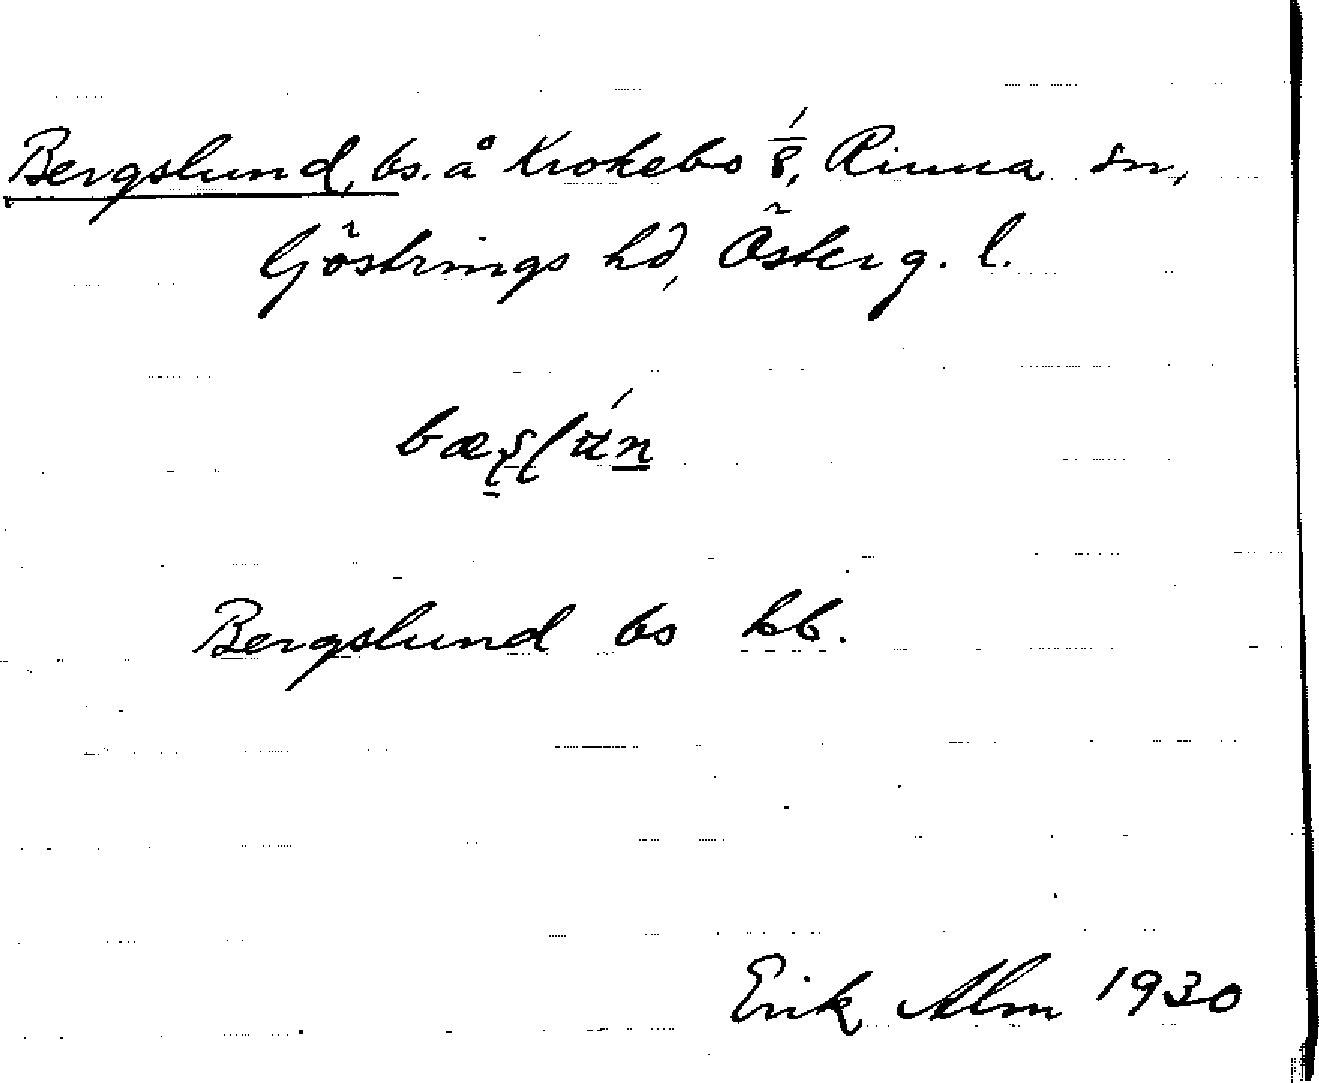 Bergslund, bs. å Krokebo 1/8, Rinna sn,
Göstrings hd, Österg. l.
Bergslund bs kb.
Erik Alm 1930